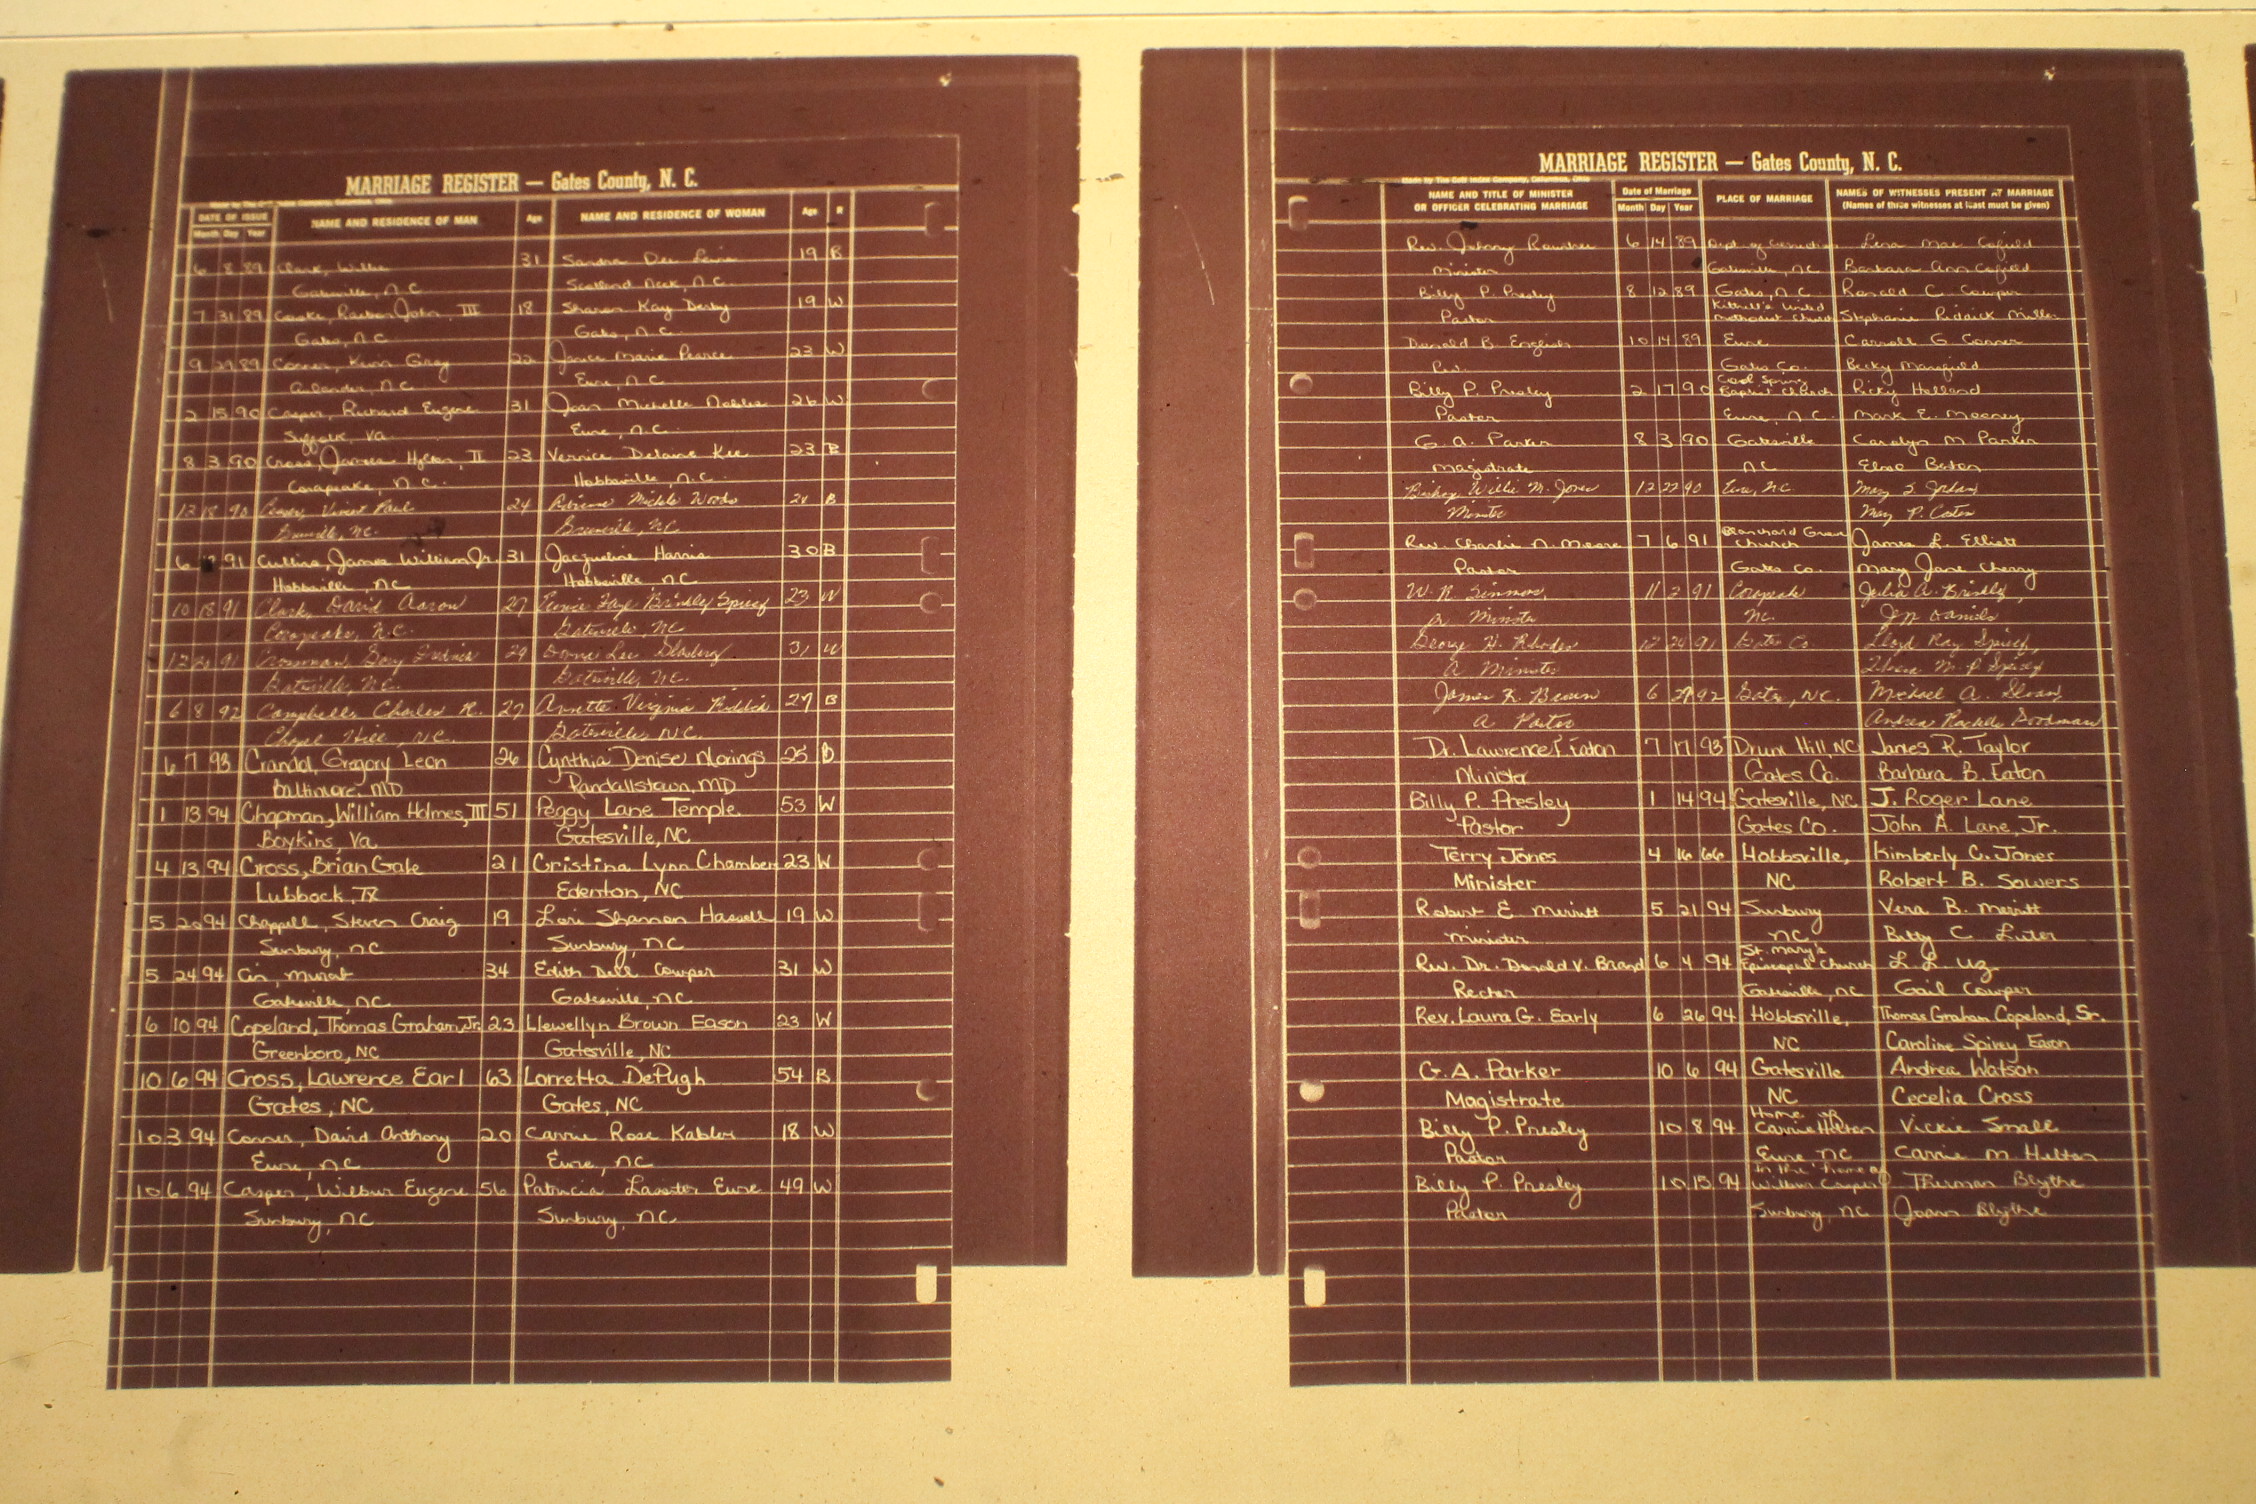 MARRIAGE REGISTER — Gates County, N. C.
DATE OF ISSUE NAME AND RESIDENCE OF MAN Age NAME AND RESIDENCE OF WOMAN Age R
Month Day Year
6 8 89 Clark, Willie 31 Sandra Dee 19 B
Gatesville, N.C. Scotland Neck, N.C.
7 31 89 John, III 18 Sharon Kay Derby 19 W
Gates, N.C. Gates, N.C.
9 29 89 Conner, Kevin Gray 22 Janice Marie Pearce 23 W
Aulander, N.C. Eure, N.C.
2 15 90 Casper, Richard Eugene 31 Joan Michelle Nobles 26 W
Suffolk, Va. Eure, N.C.
8 3 90 Cross, James II 23 Vernice Delaine 23 B
Corapeake, N.C. Hobbsville, N.C.
12 18 90 Paul 24 Michele Woods 21 B
NC. NC
6 91 Cullins, James William Jr. 31 Jacqueline Harris 30 B
Hobbsville, NC Hobbsville, NC
10 18 91 Clark, David Aaron 27 Faye Brinkley Spivey 23 W
Corapeake, N.C. Gatesville, NC
12 91 Gary 29 Donna Lee 31 W
Gatesville, NC. Gatesville, NC.
6 8 92 Campbell, Charles R. 27 Annette Virginia Riddick 27 B
Chapel Hill, NC. Gatesville, NC.
6 7 93 Crandol, Gregory Leon 26 Cynthia Denise Morings 25 B
Baltimore, MD Randallstown, MD
1 13 94 Chapman, William Holmes, III 51 Peggy Lane Temple 53 W
Boykins, Va. Gatesville, NC
4 13 94 Cross, Brian Gale 21 Cristina Lynn Chambers 23 W
Lubbock, TX Edenton, NC
5 20 94 Chappell, Steven Craig 19 Lori Shannon Hassell 19 W
Sunbury, NC Sunbury, NC
5 24 94 Cin, Murat 34 Edith Dell Cowper 31 W
Gatesville, NC Gatesville, NC
6 10 94 Copeland, Thomas Graham, Jr. 23 Llewellyn Brown Eason 23 W
Greenboro, NC Gatesville, NC
10 6 94 Cross, Lawrence Earl 63 Lorretta DePugh 54 B
Gates, NC Gates, NC
10 3 94 Conner, David Anthony 20 Carrie Rose Kabler 18 W
Eure, NC Eure, NC
10 6 94 Casper, Wilbur Eugene 56 Patricia Lassiter Eure 49 W
Sunbury, NC Sunbury, NC
MARRIAGE REGISTER — Gates County, N. C.
NAME AND TITLE OF MINISTER Date of Marriage PLACE OF MARRIAGE NAMES OF WITNESSES PRESENT AT MARRIAGE
OR OFFICER CELEBRATING MARRIAGE Month Day Year (Names of three witnesses at least must be given)
Rev. Johnny 6 14 89 Dept. of Correction Lena Mae Cofield
Minister Gatesville, NC Barbara Ann Cofield
Billy P. Presley 8 12 89 Gates, N.C. Ronald C. Cowper
Pastor Kittrell's United Methodist Church Stephanie Riddick Miller
Donald B. English 10 14 89 Eure Carroll G. Conner
Rev. Gates Co. Becky Mansfield
Billy P. Presley 2 17 90 Cool Spring Baptist Church Ricky Holland
Pastor Eure, N.C. Mark E. Mooney
G. A. Parker 8 3 90 Gatesville Carolyn M Parker
Magistrate NC
Bishop Willie M. Jones 12 22 90 Eure, NC. Mary S. Jordan
Minister Mary P. Costen
Rev. Charlie N. Moore 7 6 91 Blanchard Grove Church James L. Elliott
Pastor Gates Co. Mary Jane Cherry
W. R. Simmons, 11 2 91 Corapeake Julia A. Brinkley,
A Minister NC. Daniels
George H. Rhodes 12 24 91 Gates Co. Lloyd Ray Spivey,
A Minister M. P. Spivey
James R. Brown 6 27 92 Gates, NC. Michael A. Sloan,
A Pastor Andrea Rachelle Boodman
Dr. Lawrence F. Eaton 7 17 93 Drum Hill, NC James R. Taylor
Minister Gates Co. Barbara B. Eaton
Billy P. Presley 1 14 94 Gatesville, NC J. Roger Lane
Pastor Gates Co. John A. Lane, Jr.
Terry Jones 4 16 66 Hobbsville, Kimberly C. Jones
Minister NC Robert B. Sowers
Robert E Merritt 5 21 94 Sunbury Vera B. Merritt
Minister NC Betty C Luter
Rev. Dr. Donald V. Brand 6 4 94 St. Mary's Episcopal Church L. L. Uz
Rector Gatesville, NC Gail Cowper
Rev. Laura G. Early 6 26 94 Hobbsville, Thomas Graham Copeland, Sr.
NC Caroline Spivey Eason
G. A. Parker 10 6 94 Gatesville Andrea Watson
Magistrate NC Cecelia Cross
Billy P. Presley 10 8 94 Home of Carrie Hilton Vickie Small
Pastor Eure NC Carrie M Hilton
Billy P. Presley 10 15 94 In the home of Wilbur Casper Thurman Blythe
Pastor Sunbury, NC Joann Blythe